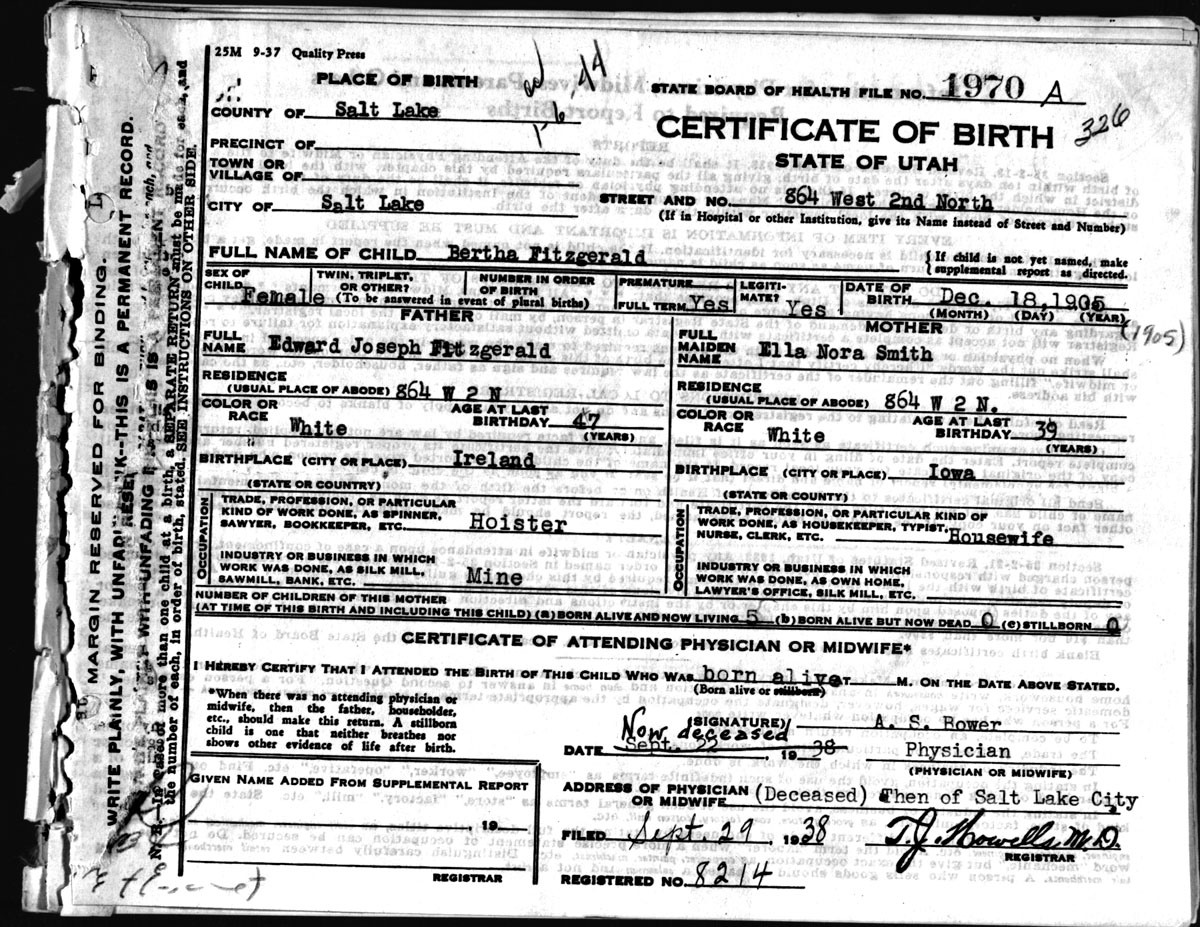 25M 9-37 Quality Press
PLACE OF BIRTH
COUNTY OF Salt Lake
PRECINCT OF
TOWN OR
VILLAGE OF
CITY OF Salt Lake
STATE BOARD OF HEALTH FILE NO. 1970 A
326
CERTIFICATE OF BIRTH
STATE OF UTAH
STREET AND NO. 864 West 2nd North
(If in Hospital or other Institution, give its Name instead of Street and Number)
FULL NAME OF CHILD Bertha Fitzgerald
{ If child is not yet named, make
supplemental report as directed.
SEX OF
CHILD Female
TWIN, TRIPLET,
OR OTHER?
NUMBER IN ORDER
OF BIRTH
(To be answered in event of plural births)
PREMATURE
FULL TERM Yes
LEGITI-
MATE? Yes
DATE OF
BIRTH Dec. 18, 1905
(MONTH) (DAY) (YEAR)
(1905)
FATHER
FULL
NAME Edward Joseph Fitzgerald
RESIDENCE
(USUAL PLACE OF ABODE) 864 W 2 N
COLOR OR
RACE White
AGE AT LAST
BIRTHDAY 47
(YEARS)
BIRTHPLACE (CITY OR PLACE) Ireland
(STATE OR COUNTRY)
OCCUPATION
TRADE, PROFESSION, OR PARTICULAR
KIND OF WORK DONE, AS SPINNER,
SAWYER, BOOKKEEPER, ETC. Hoister
INDUSTRY OR BUSINESS IN WHICH
WORK WAS DONE, AS SILK MILL,
SAWMILL, BANK, ETC. Mine
MOTHER
FULL
MAIDEN
NAME Ella Nora Smith
RESIDENCE
(USUAL PLACE OF ABODE) 864 W 2 N.
COLOR OR
RACE White
AGE AT LAST
BIRTHDAY 39
(YEARS)
BIRTHPLACE (CITY OR PLACE) Iowa
(STATE OR COUNTY)
OCCUPATION
TRADE, PROFESSION, OR PARTICULAR KIND OF
WORK DONE, AS HOUSEKEEPER, TYPIST,
NURSE, CLERK, ETC. Housewife
INDUSTRY OR BUSINESS IN WHICH
WORK WAS DONE, AS OWN HOME,
LAWYER'S OFFICE, SILK MILL, ETC.
NUMBER OF CHILDREN OF THIS MOTHER
(AT TIME OF THIS BIRTH AND INCLUDING THIS CHILD) (a) BORN ALIVE AND NOW LIVING 5 (b) BORN ALIVE BUT NOW DEAD 0 (c) STILLBORN 0
CERTIFICATE OF ATTENDING PHYSICIAN OR MIDWIFE*
I HEREBY CERTIFY THAT I ATTENDED THE BIRTH OF THIS CHILD WHO WAS born alive AT M. ON THE DATE ABOVE STATED.
(Born alive or stillborn)
*When there was no attending physician or
midwife, then the father, householder,
etc., should make this return. A stillborn
child is one that neither breathes nor
shows other evidence of life after birth.
Now deceased
(SIGNATURE) A. S. Bower
DATE Sept. 22 1938
Physician
(PHYSICIAN OR MIDWIFE)
GIVEN NAME ADDED FROM SUPPLEMENTAL REPORT
19
REGISTRAR
ADDRESS OF PHYSICIAN
OR MIDWIFE (Deceased) Then of Salt Lake City
FILED Sept. 29 1938 T.J. Howells, M.D.
REGISTRAR
REGISTERED NO. 8214
MARGIN RESERVED FOR BINDING.
WRITE PLAINLY, WITH UNFADING INK—THIS IS A PERMANENT RECORD.
N. B.—In case of more than one child at a birth, a SEPARATE RETURN must be made for each, and
the number of each, in order of birth, stated. SEE INSTRUCTIONS ON OTHER SIDE.